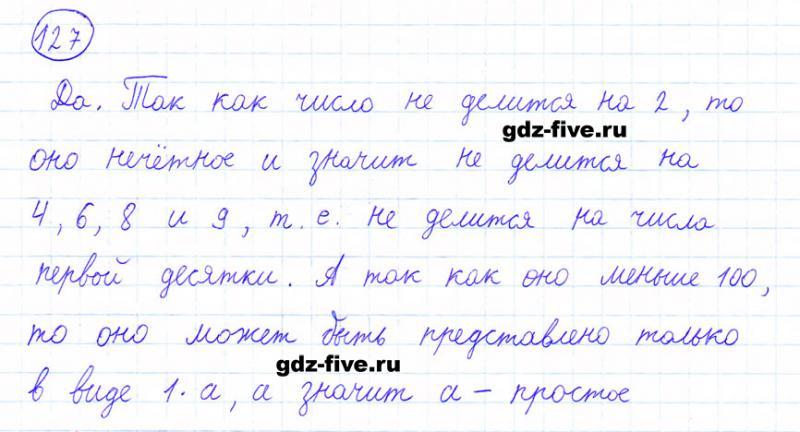 127
Да. Так как число не делится на 2, то
gdz-five.ru
оно нечётное и значит не делится на
4, 6, 8 и 9, т.е. не делится на числа
первой десятки. А так как оно меньше 100,
то оно может быть представлено только
gdz-five.ru
в виде 1·а, а значит а - простое